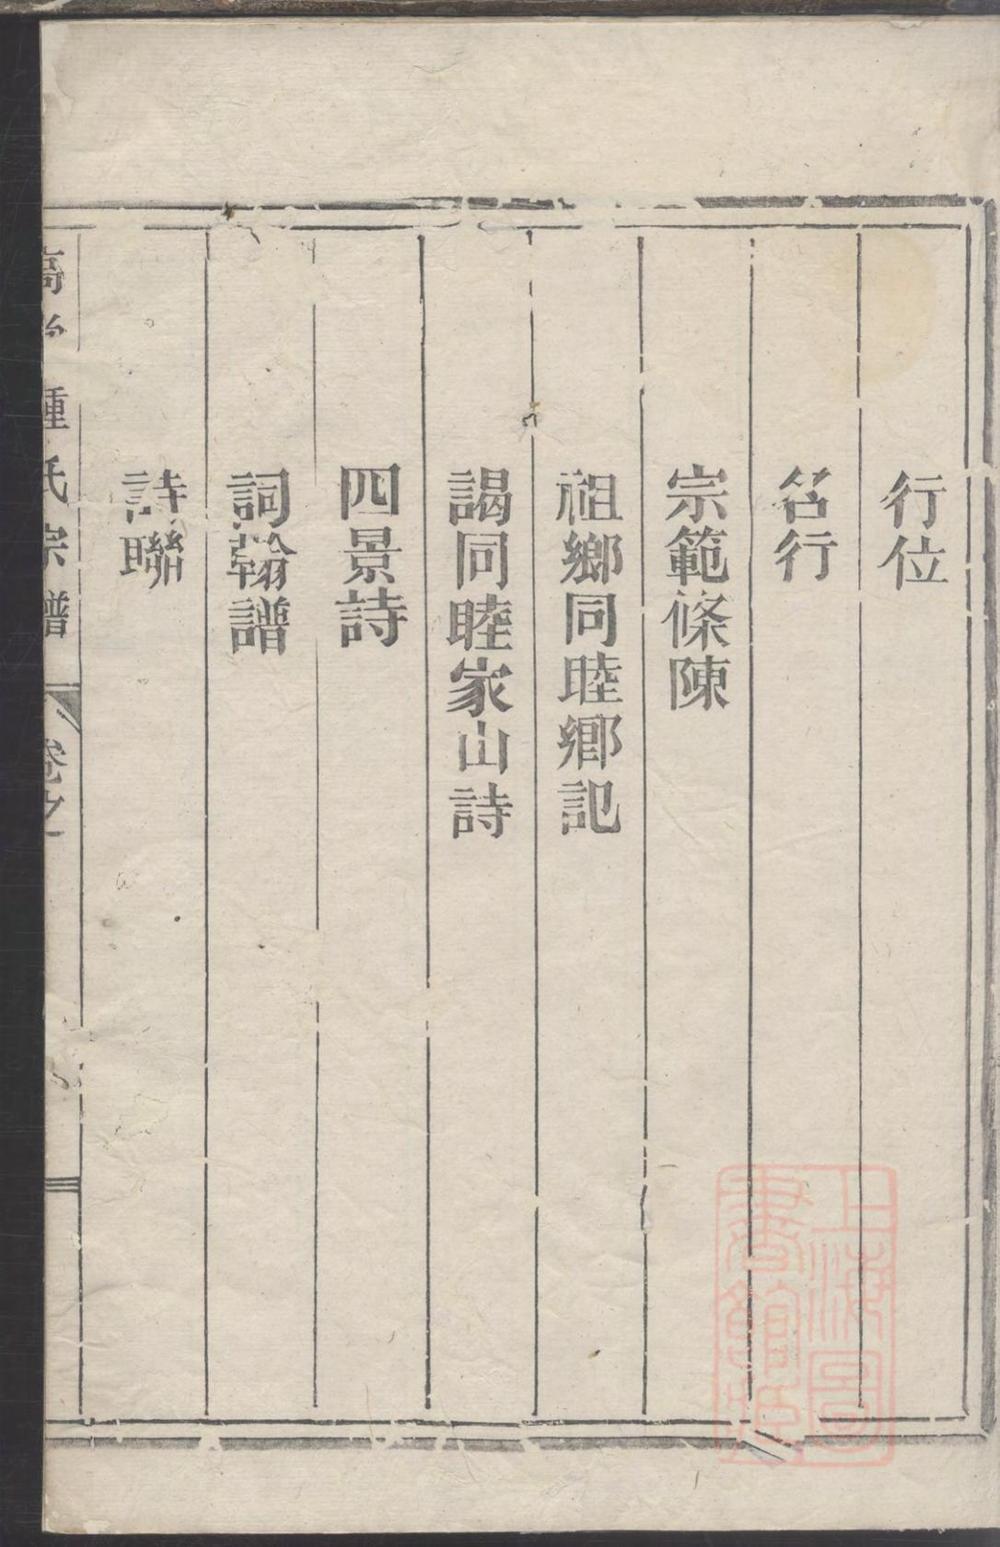 行位
名行
宗範條陳
祖鄉同睦鄉記
謁同睦家山詩
四景詩
詞翰譜
詩聯
氏宗譜
卷之
上海圖
書館藏